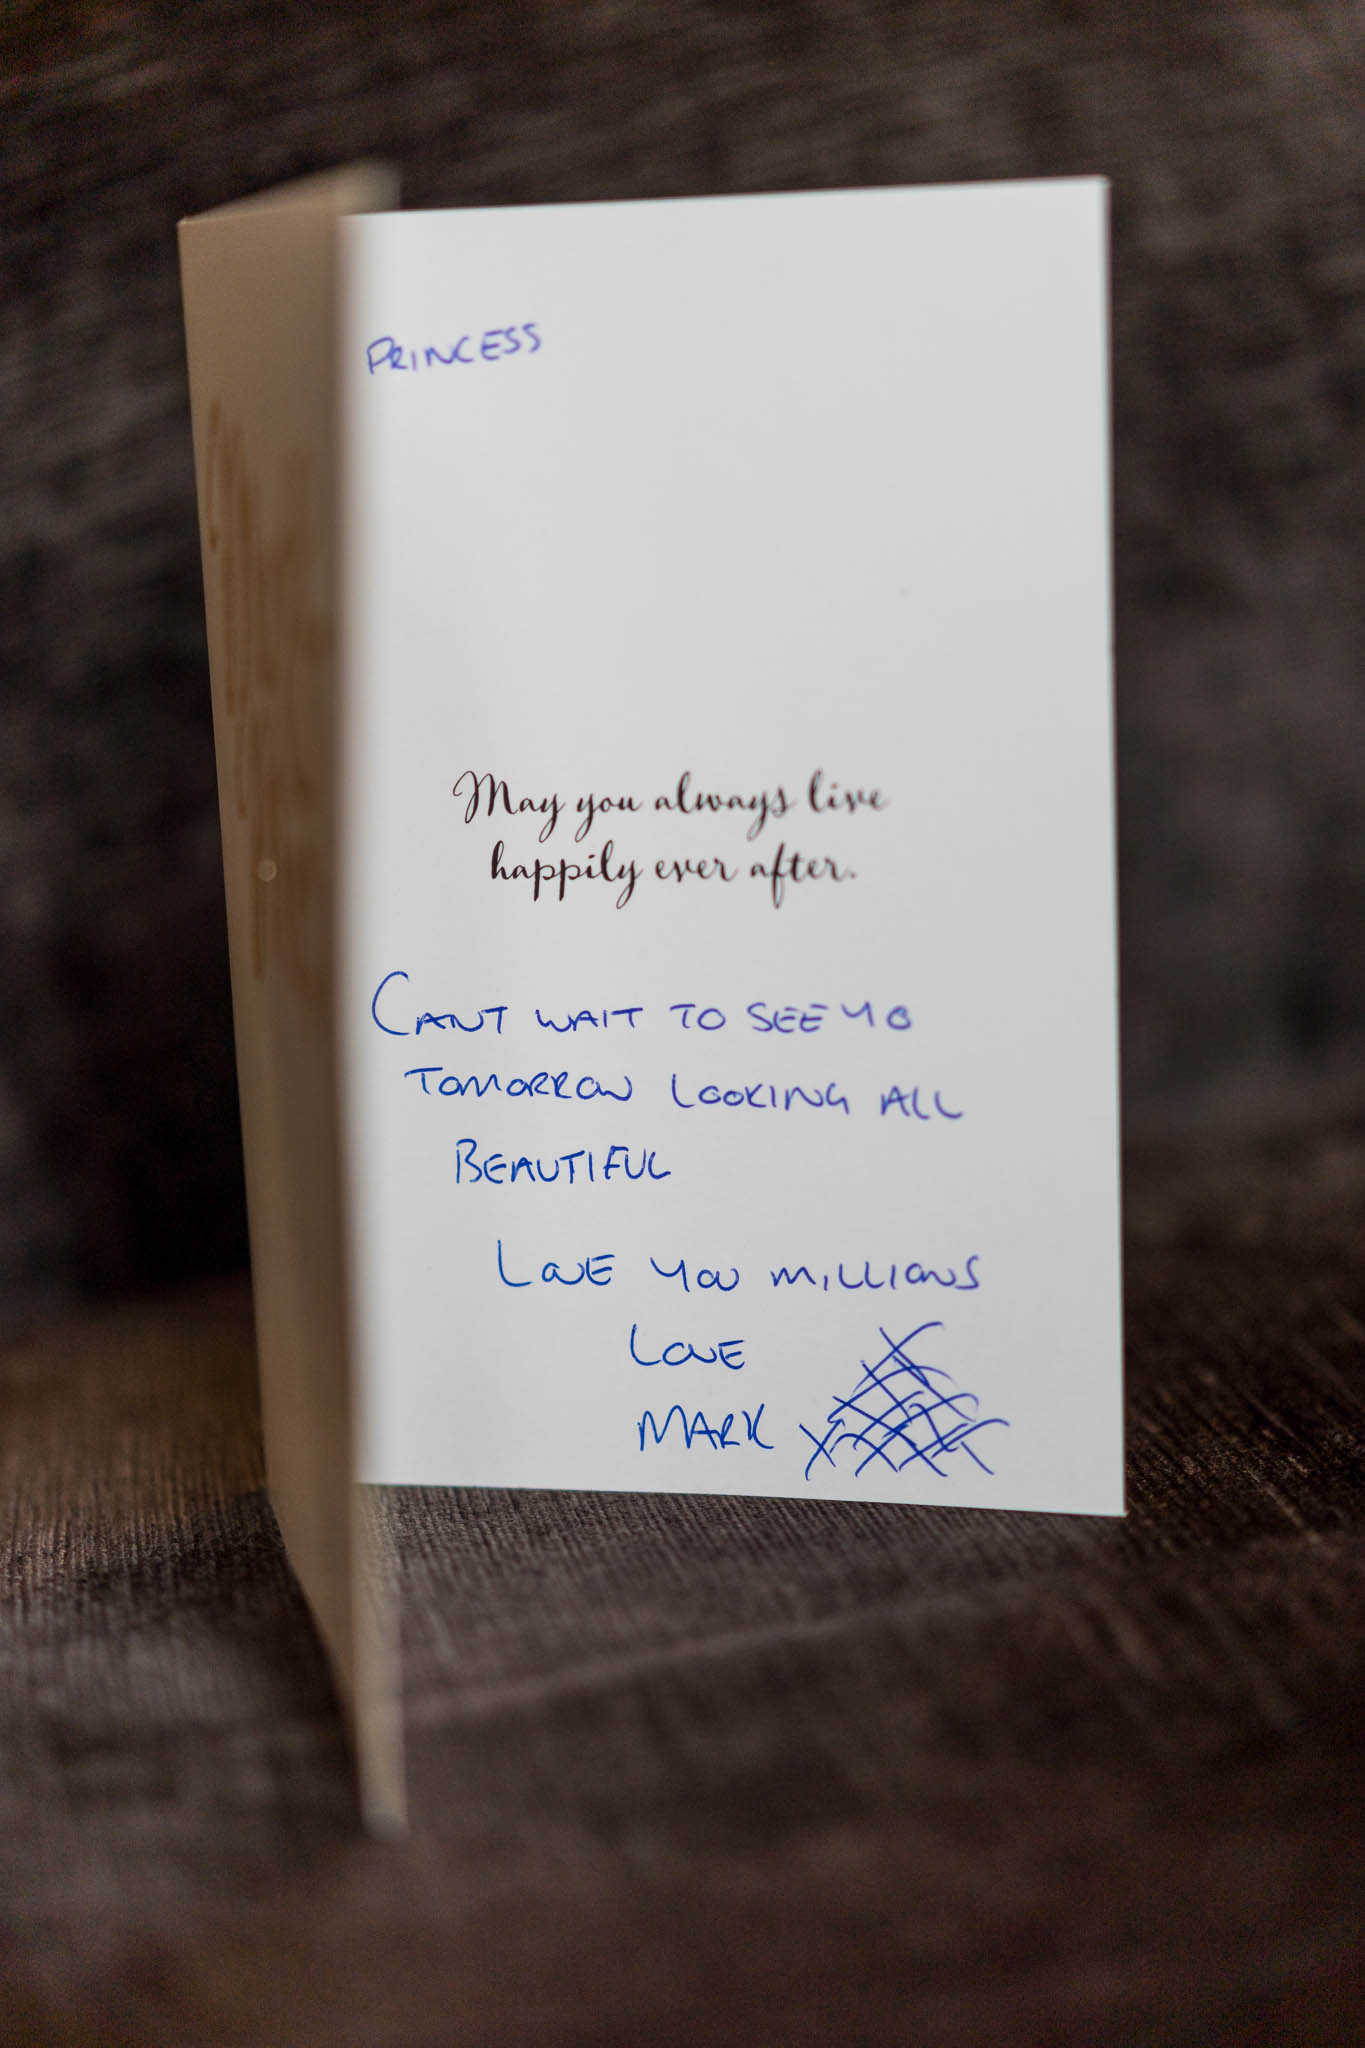 PRINCESS
May you always live
happily ever after.
CANT WAIT TO SEE YO
TOMORROW LOOKING ALL
BEAUTIFUL
LOVE YOU MILLIONS
LOVE
MARK